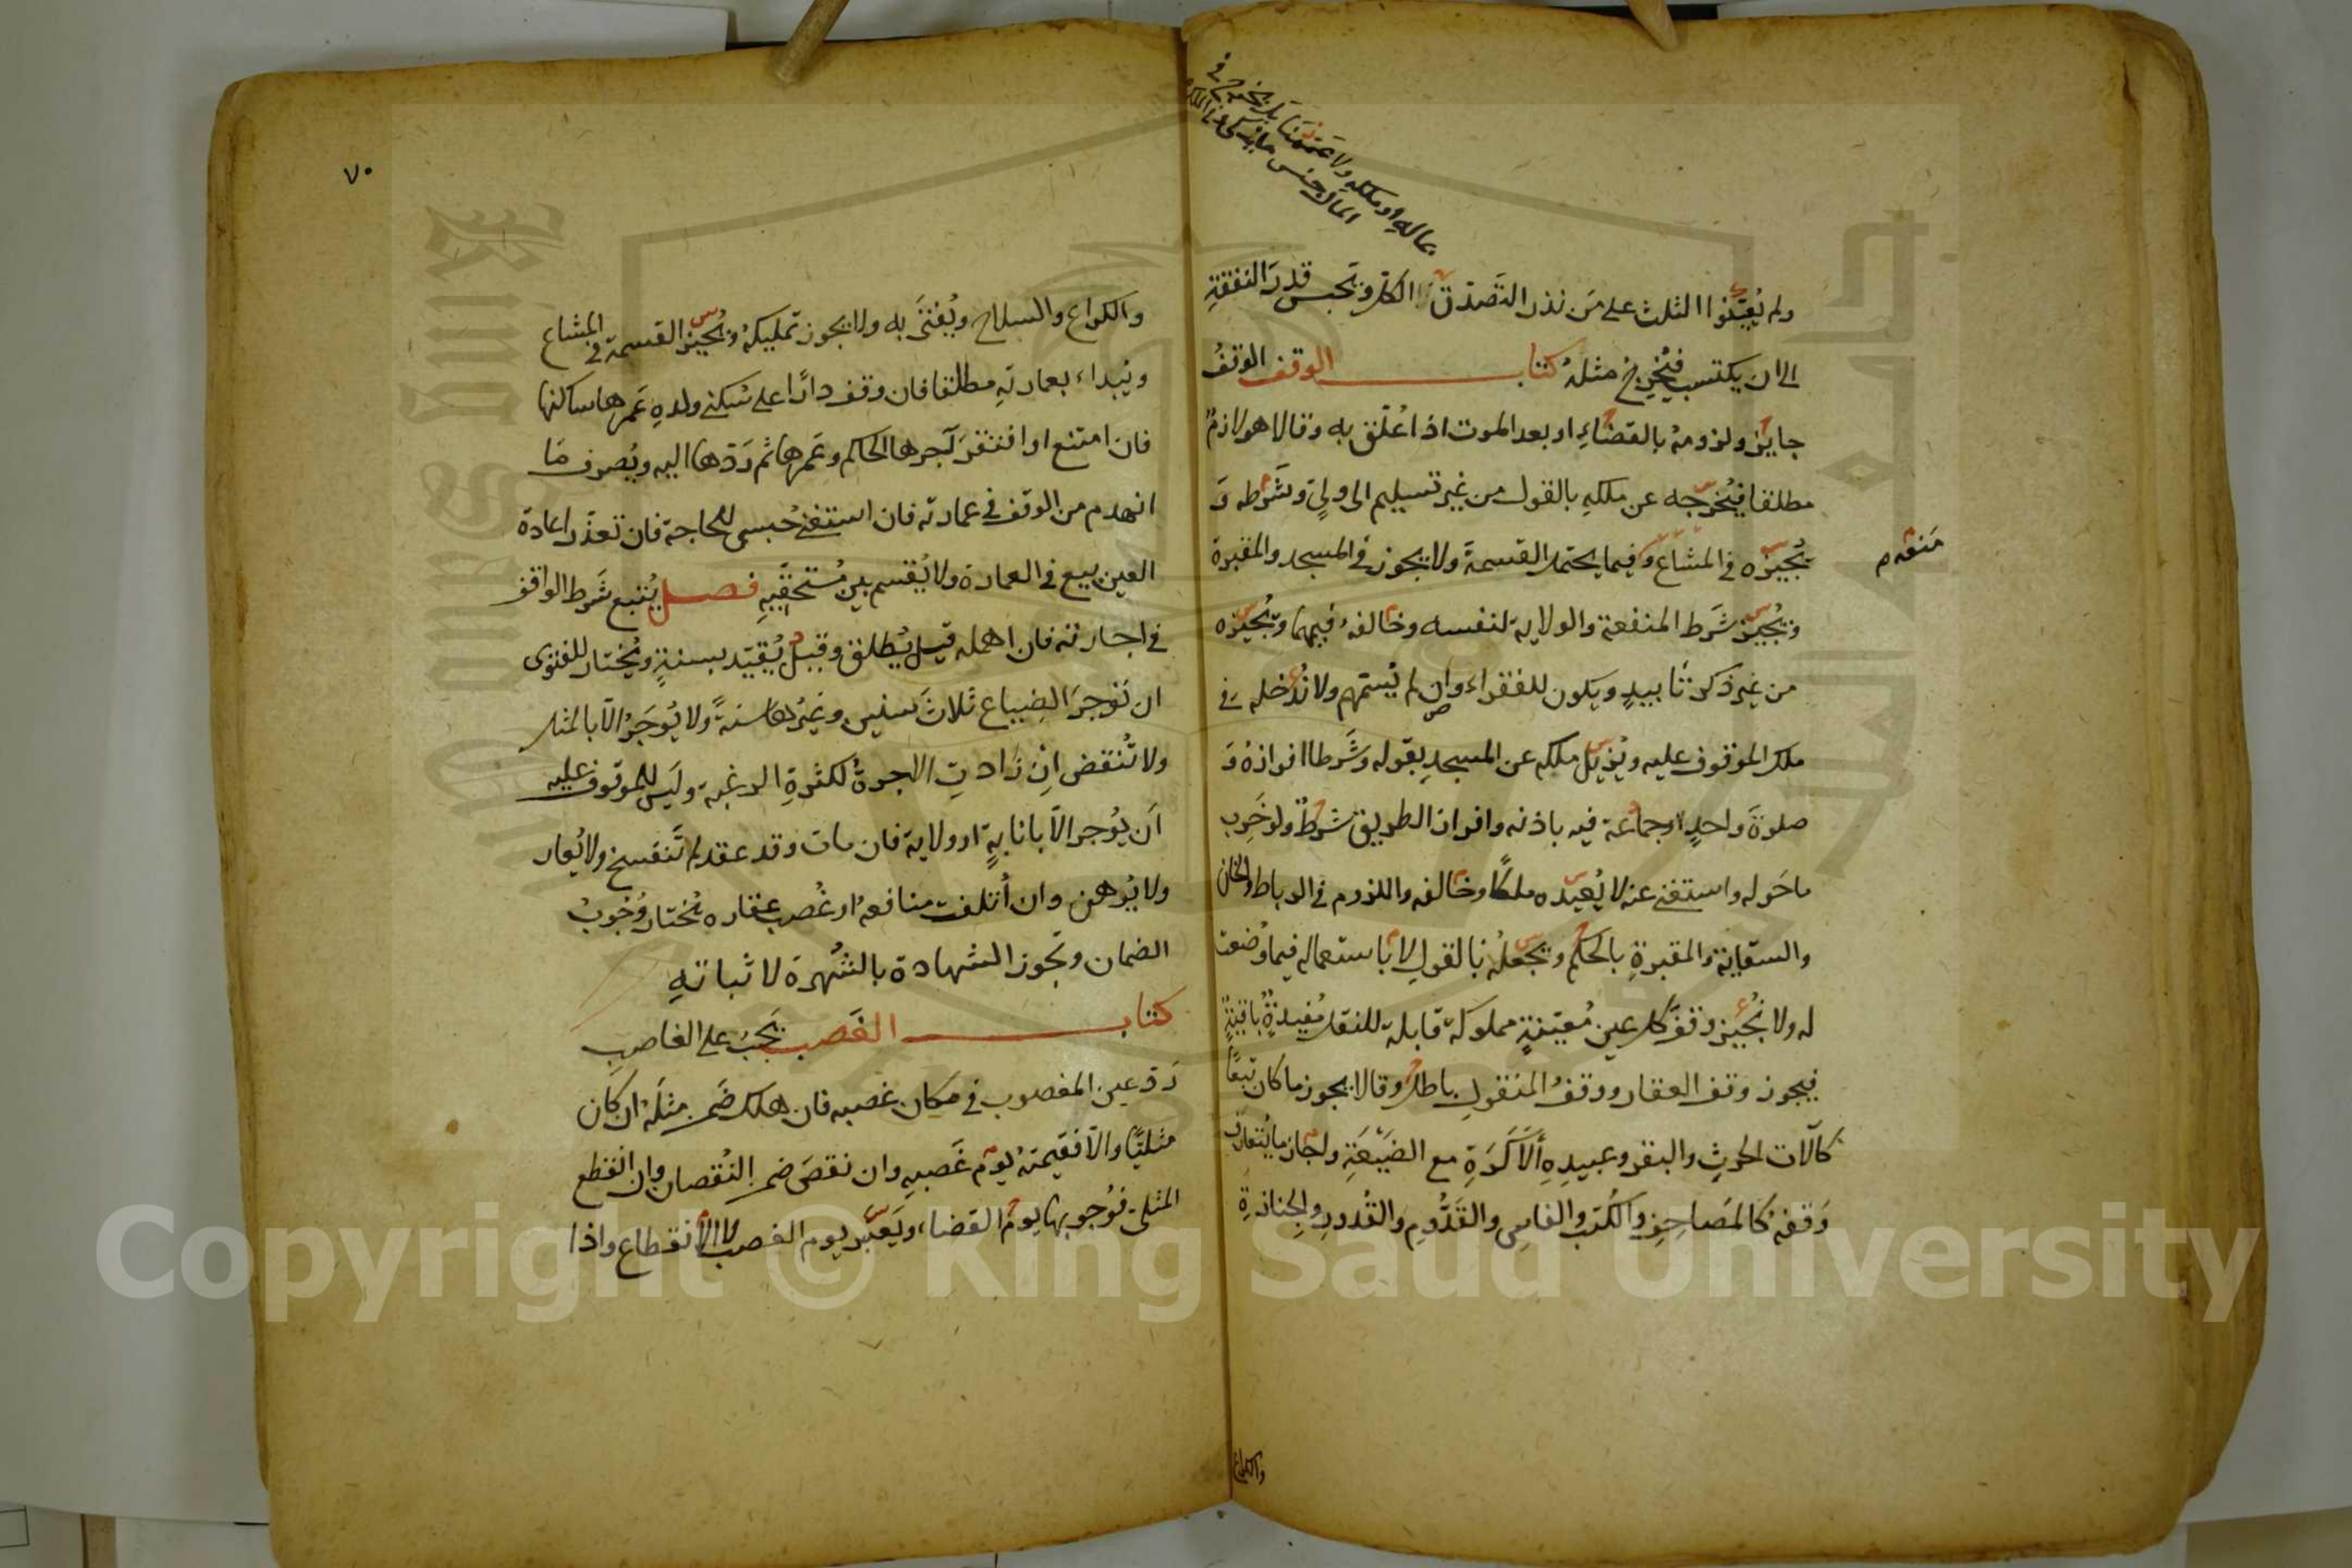 بماله او ملكه ولا عممنا بل يخرج في
المال جنس ما يزكى وفي الملك
ولم يُعيّنوا الثلث على مَن نذر التَصدّق بالكل ويحبس قدرَ النفقةِ
الى ان يكتسب فيُخرِجُ مثلهُ كتاب الوقف الوقفُ
جايزٌ ولزومهُ بالقضاءِ او بعد الموت اذا عُلّق به وقالا هو لازمٌ
مطلقا فيُخرجه عن ملكهِ بالقول من غير تسليم الى وليٍ وشَرطه وَ
يُجيزه في المشاع وفيما يحتمل القسمةَ ولا يجوز في المسجد والمقبرة
مَنعه م
ويُجيز شَرط المنفعة والولاية لنفسه وخالفهُ فيهما ويُجيزه
من غير ذكر تأبيدٍ ويكون للفقراء وان لم يُسمّهم ولا نُدخله في
ملك الموقوف عليه ويُزيل ملكه عن المسجدِ بقوله وشَرطا افرازهُ وَ
صلوةَ واحدٍ او جماعة فيه باذنه وافراز الطريق شرطٌ ولو خَرِب
ما حَوله واستغنى عنه لا يُعيده ملكًا وخالفه واللزوم في الرباط والخان
والسقاية والمقبرةِ بالحكم ويجعلُه بالقولِ لا باستعماله فيما وُضعت
له ولا نُجيز وقفَ كل عين مُعيّنةٍ مملوكة قابلة للنقل مُفيدةٍ باقيةٍ
فيجوز وقف العقار ووقفُ المنقولِ باطل وقالا يجوز ما كان تبعًا
كآلات الحرثِ والبقر وعبيدِهِ الأَكَرَةِ مع الضَيْعَةِ واجاز ما يُتعارف
وَقفهُ كالمَصاحِفِ والكُتب والفاسِ والقَدُّومِ والقُدورِ والجنازةِ
والكراع
٧٠
والكراع والسلاح ويُفتَى به ولا يجوز تمليكهُ ويُجيز القسمة في المشاع
ويُبداء بعمارتهِ مطلقا فان وقف دارًا على سُكنى ولدهِ عَمرها ساكنها
فان امتنع او افتقرَ آجرها الحاكم وعَمرها ثم رَدّها اليه ويُصرف مَا
انهدم من الوقف في عمارته فان استغنى حُبس للحاجة فان تعذّر اعادة
العين بيع في العمارة ولا يُقسم بين مُستحقّيهِ فصل يُتبع شَرط الواقف
في اجارته فان اهمله قيل يُطلق وقيل يُقيّد بسنةٍ ويُختار للفتوى
ان تؤجرَ الضِياع ثلاث سنين وغيرُها سنةً ولا يُوجَرُ الّا بالمثل
ولا تُنقض اِن زادتِ الاجرةُ لكثرةِ الرغبة وليَس للموقوف عليه
اَن يُوجر الّا بانابةٍ او ولاية فان مات وقد عقد لم تَنفسخ ولا يُعار
ولا يُرهن وان اُتلفت منافعهُ او غُصب عقاره يُختار وُجُوبُ
الضمان وتجوز الشهادة بالشُهرة لاثباتهِ
كتاب الغَصب يَجبُ على الغاصبِ
رَدّ عين المغصوب في مكان غصبه فان هلك ضَمن مثلَهُ ان كَان
مثليًّا والّا فقيمتهُ يومَ غَصبهِ وان نقصَ ضمن النُقصان وان انقطع
المثلى فوُجوبها يومَ القضاء ويَعتبر يوم الغصب لا الانقطاع واذا
Copyright © King Saud University